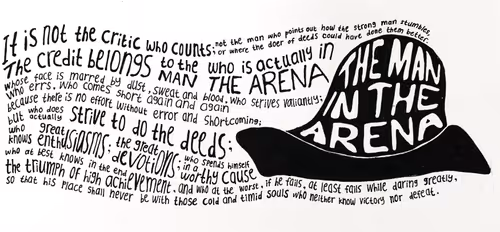 It is not the critic who counts; not the man who points out how the strong man stumbles,
or where the doer of deeds could have done them better.
The credit belongs to the man who is actually in THE ARENA
whose face is marred by dust, sweat and blood, who strives valiantly;
who errs, who comes short again and again
because there is no effort without error and shortcoming;
but who does actually strive to do the deeds;
who knows great enthusiasms; the great devotions; who spends himself in a worthy cause
who at best knows in the end
the triumph of high achievement. and who at the worst, if he fails, at least fails while daring greatly,
so that his place shall never be with those cold and timid souls who neither know victory nor defeat.
THE MAN
IN THE
ARENA